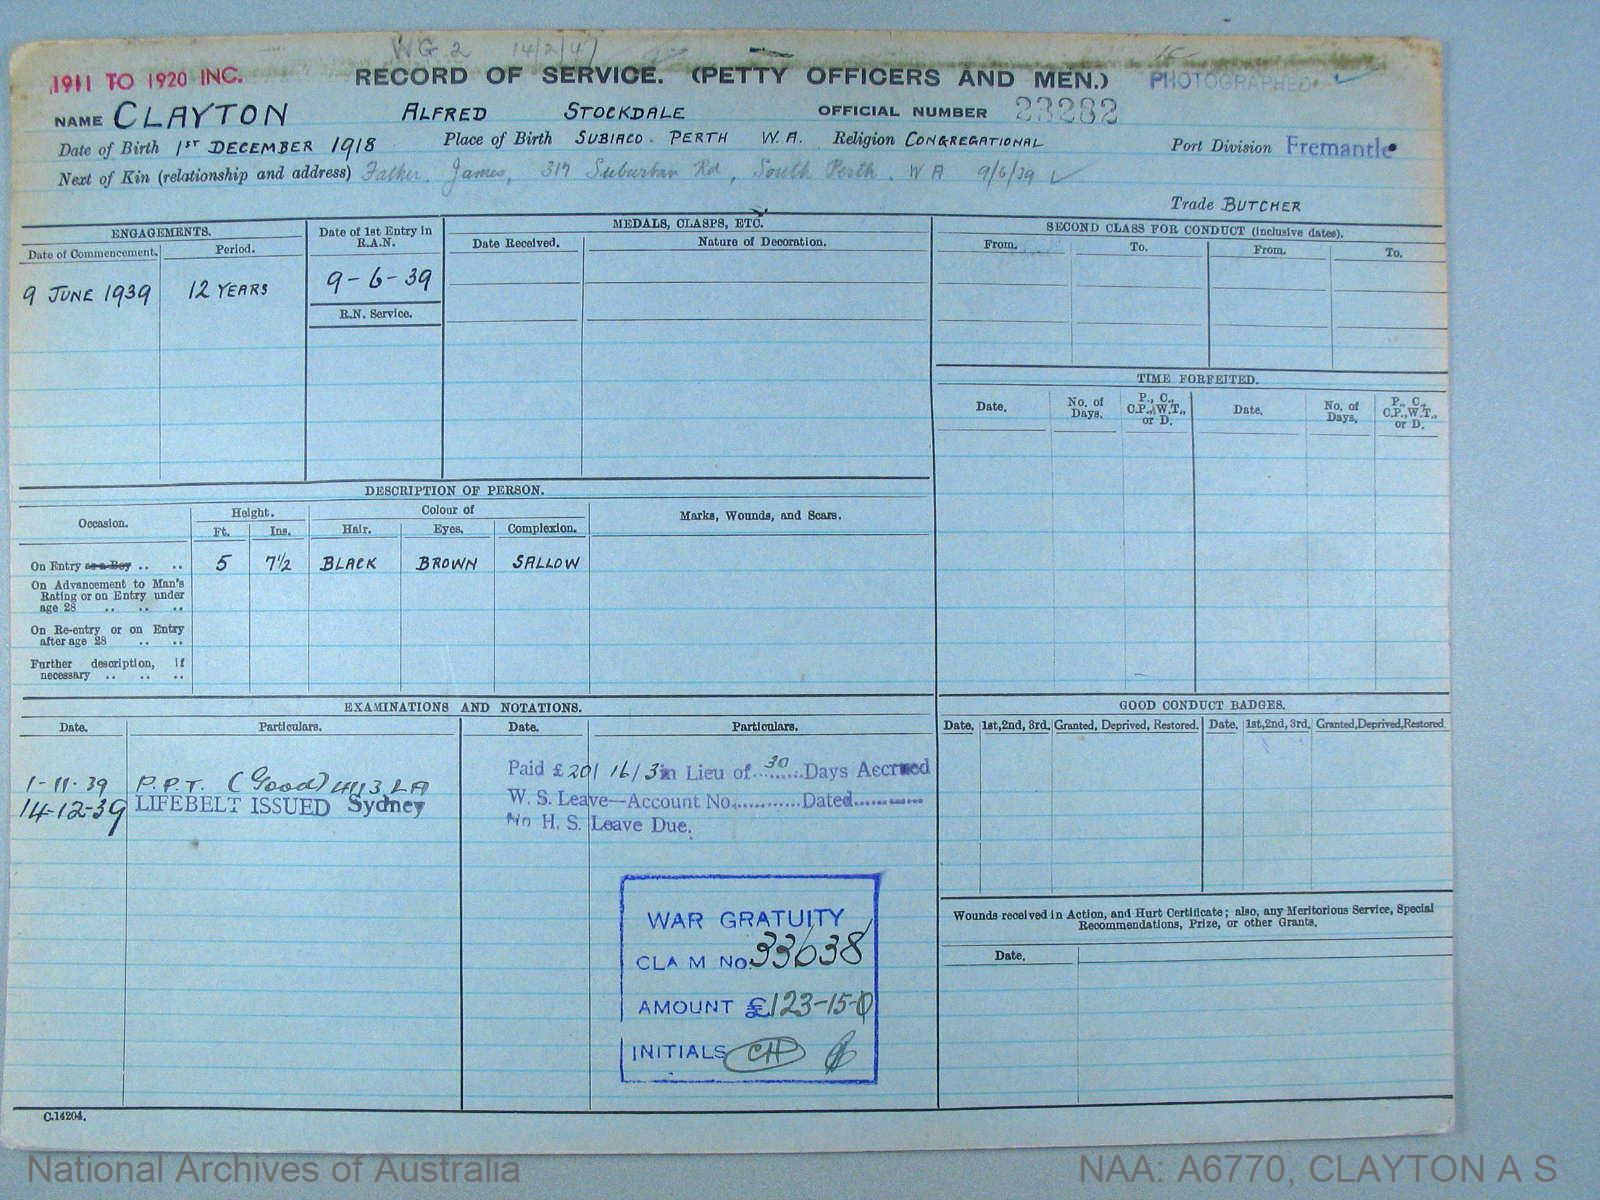 WG 2 14/2/47
1911 TO 1920 INC. RECORD OF SERVICE. (PETTY OFFICERS AND MEN.) PHOTOGRAPHED
NAME CLAYTON ALFRED STOCKDALE OFFICIAL NUMBER 23282
Date of Birth 1ST DECEMBER 1918 Place of Birth SUBIACO. PERTH W.A. Religion CONGREGATIONAL Port Division Fremantle
Next of Kin (relationship and address) Father. James, 317 Suburban Rd, South Perth. W A 9/6/39
Trade BUTCHER
ENGAGEMENTS.
Date of Commencement. Period.
9 JUNE 1939 12 YEARS
Date of 1st Entry in
R.A.N.
9-6-39
R.N. Service.
MEDALS, CLASPS, ETC.
Date Received. Nature of Decoration.
SECOND CLASS FOR CONDUCT (inclusive dates).
From. To. From. To.
TIME FORFEITED.
Date. No. of Days. P., C., C.P., W.T., or D. Date. No. of Days. P., C., C.P., W.T., or D.
DESCRIPTION OF PERSON.
Occasion. Height. Colour of Marks, Wounds, and Scars.
Ft. Ins. Hair. Eyes. Complexion.
On Entry as a Boy .. .. 5 7½ BLACK BROWN SALLOW
On Advancement to Man's
Rating or on Entry under
age 28 .. .. ..
On Re-entry or on Entry
after age 28 .. ..
Further description, if
necessary .. .. ..
EXAMINATIONS AND NOTATIONS.
Date. Particulars. Date. Particulars.
1-11-39 P.P.T. (Good) 4113 LA
14-12-39 LIFEBELT ISSUED Sydney
Paid £20/16/3 in Lieu of 30 Days Accrued
W. S. Leave—Account No. Dated
No H. S. Leave Due.
WAR GRATUITY
CLAIM No. 33638
AMOUNT £123-15-0
INITIALS CH
GOOD CONDUCT BADGES.
Date. 1st, 2nd, 3rd. Granted, Deprived, Restored. Date. 1st, 2nd, 3rd. Granted, Deprived, Restored.
Wounds received in Action, and Hurt Certificate; also, any Meritorious Service, Special
Recommendations, Prize, or other Grants.
Date.
C.14204.
National Archives of Australia NAA: A6770, CLAYTON A S